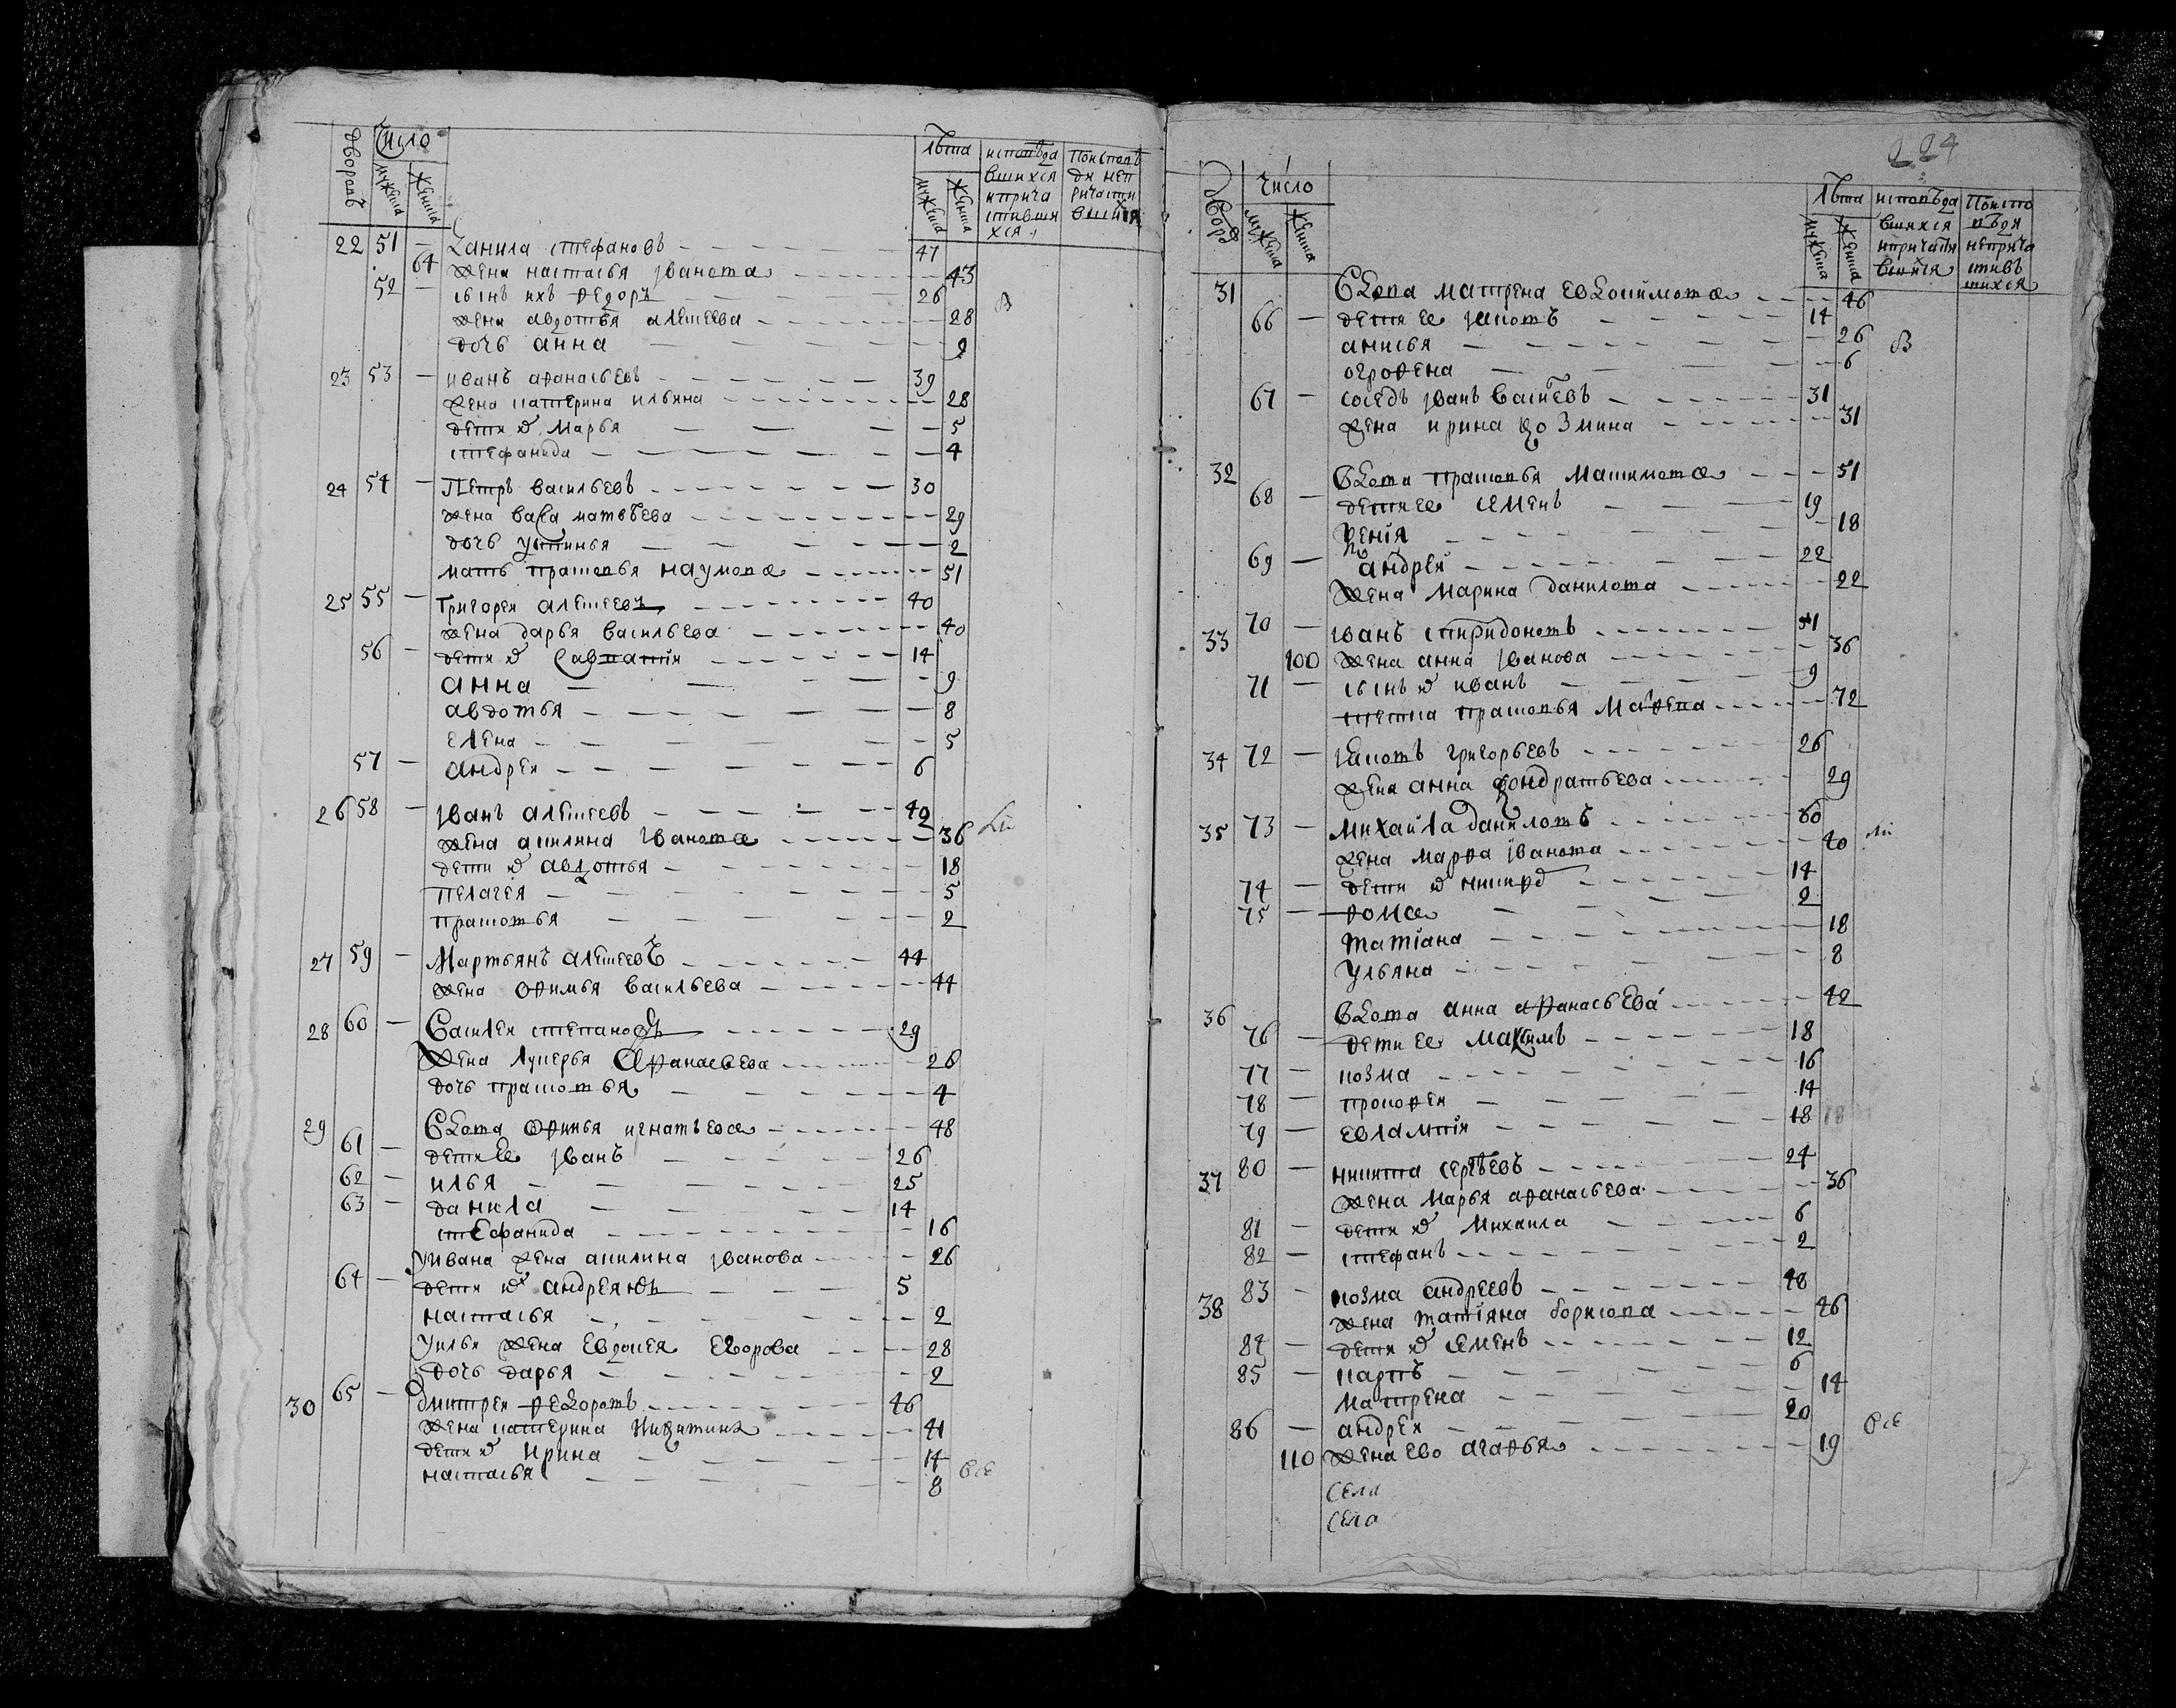 дворовъ число лѣта исповѣда Поисповѣ
мужеска женска мужеска женска вшихся ди неп
ипрiча ричасти
стивши вшихся
хся
22 51 — Данила стефановъ 47
64 жена настасья Iванова 43
52 — сынъ ихъ Федоръ 26
жена авдотья алеѯеева 28
дочь анна 9
23 53 — иванъ афанасьевъ 39
жена катерина ильина 28
дети их марья 5
стефанида 4
24 54 — Петръ васильевъ 30
жена васа матвѣева 29
дочь устинья 2
мать прасковья наумова 51
25 55 — Григореи алеѯеевъ 40
жена дарья васильева 40
56 — дети их савватiи 14
анна 9
авдотья 8
елена 5
57 — андреи 6
26 58 — Iванъ алеѯеевъ 42
жена акилина Iванова 36
дети их авдотья 18
пелагея 5
прасковья 2
27 59 — Мартьянъ алеѯеевъ 44
жена офимья васильева 44
28 60 — Василеи степановъ 29
жена лукерья афанасьева 26
дочь прасковья 4
29 вдова офимья игнатьева 48
61 — дети ее Iванъ 26
62 — илья 25
63 — данила 14
стефанида 16
уивана жена акилина Iванова 26
64 — дети их андреянъ 5
настасья 2
уильи жена евдокея егорова 28
дочь дарья 2
30 65 — дмитреи федоровъ 46
жена катерина никитина 41
дети их ирина 14
настасья 8 все
224
дворов число лѣта исповѣда Поиспо
мужеска женска мужеска женска вшихся вѣдя
ипричасти неприча
вшихся стивъ
шихся
31 вдова матрена евдокимова 46
66 — дети ее яковъ 14
анисья 26
огрофена 6
67 — соседъ Iванъ васильевъ 31
жена ирина козмина 31
32 вдова прасковья макимова 51
68 — дети ее семенъ 19
ѯенiя 18
69 — андреи 22
жена марина данилова 22
33 70 — Iванъ спиридоновъ 41
100 жена анна Iванова 36
71 — сынъ их иванъ 9
тетка прасковья марѳева 72
34 72 — яковъ григорьевъ 26
жена анна кондратьева 29
35 73 — михаила даниловъ 60
жена марфа Iванова 40
74 — дети их никифо 14
75 — фома 2
татiана 18
ульяна 8
36 вдова анна афанасьева 42
76 — дети ее маѯимъ 18
77 — козма 16
78 — прокофеи 14
79 — евлампiи 18 18
37 80 — никита сергѣевъ 24
жена марья афанасьева 36
81 — дети их михаила 6
82 — стефанъ 2
38 83 — козма андреевъ 48
жена татiяна борисова 46
84 — дети их семенъ 12
85 — карпъ 6
матрена 14
86 — андреи 20
110 жена ево агафья 19 все
села
села